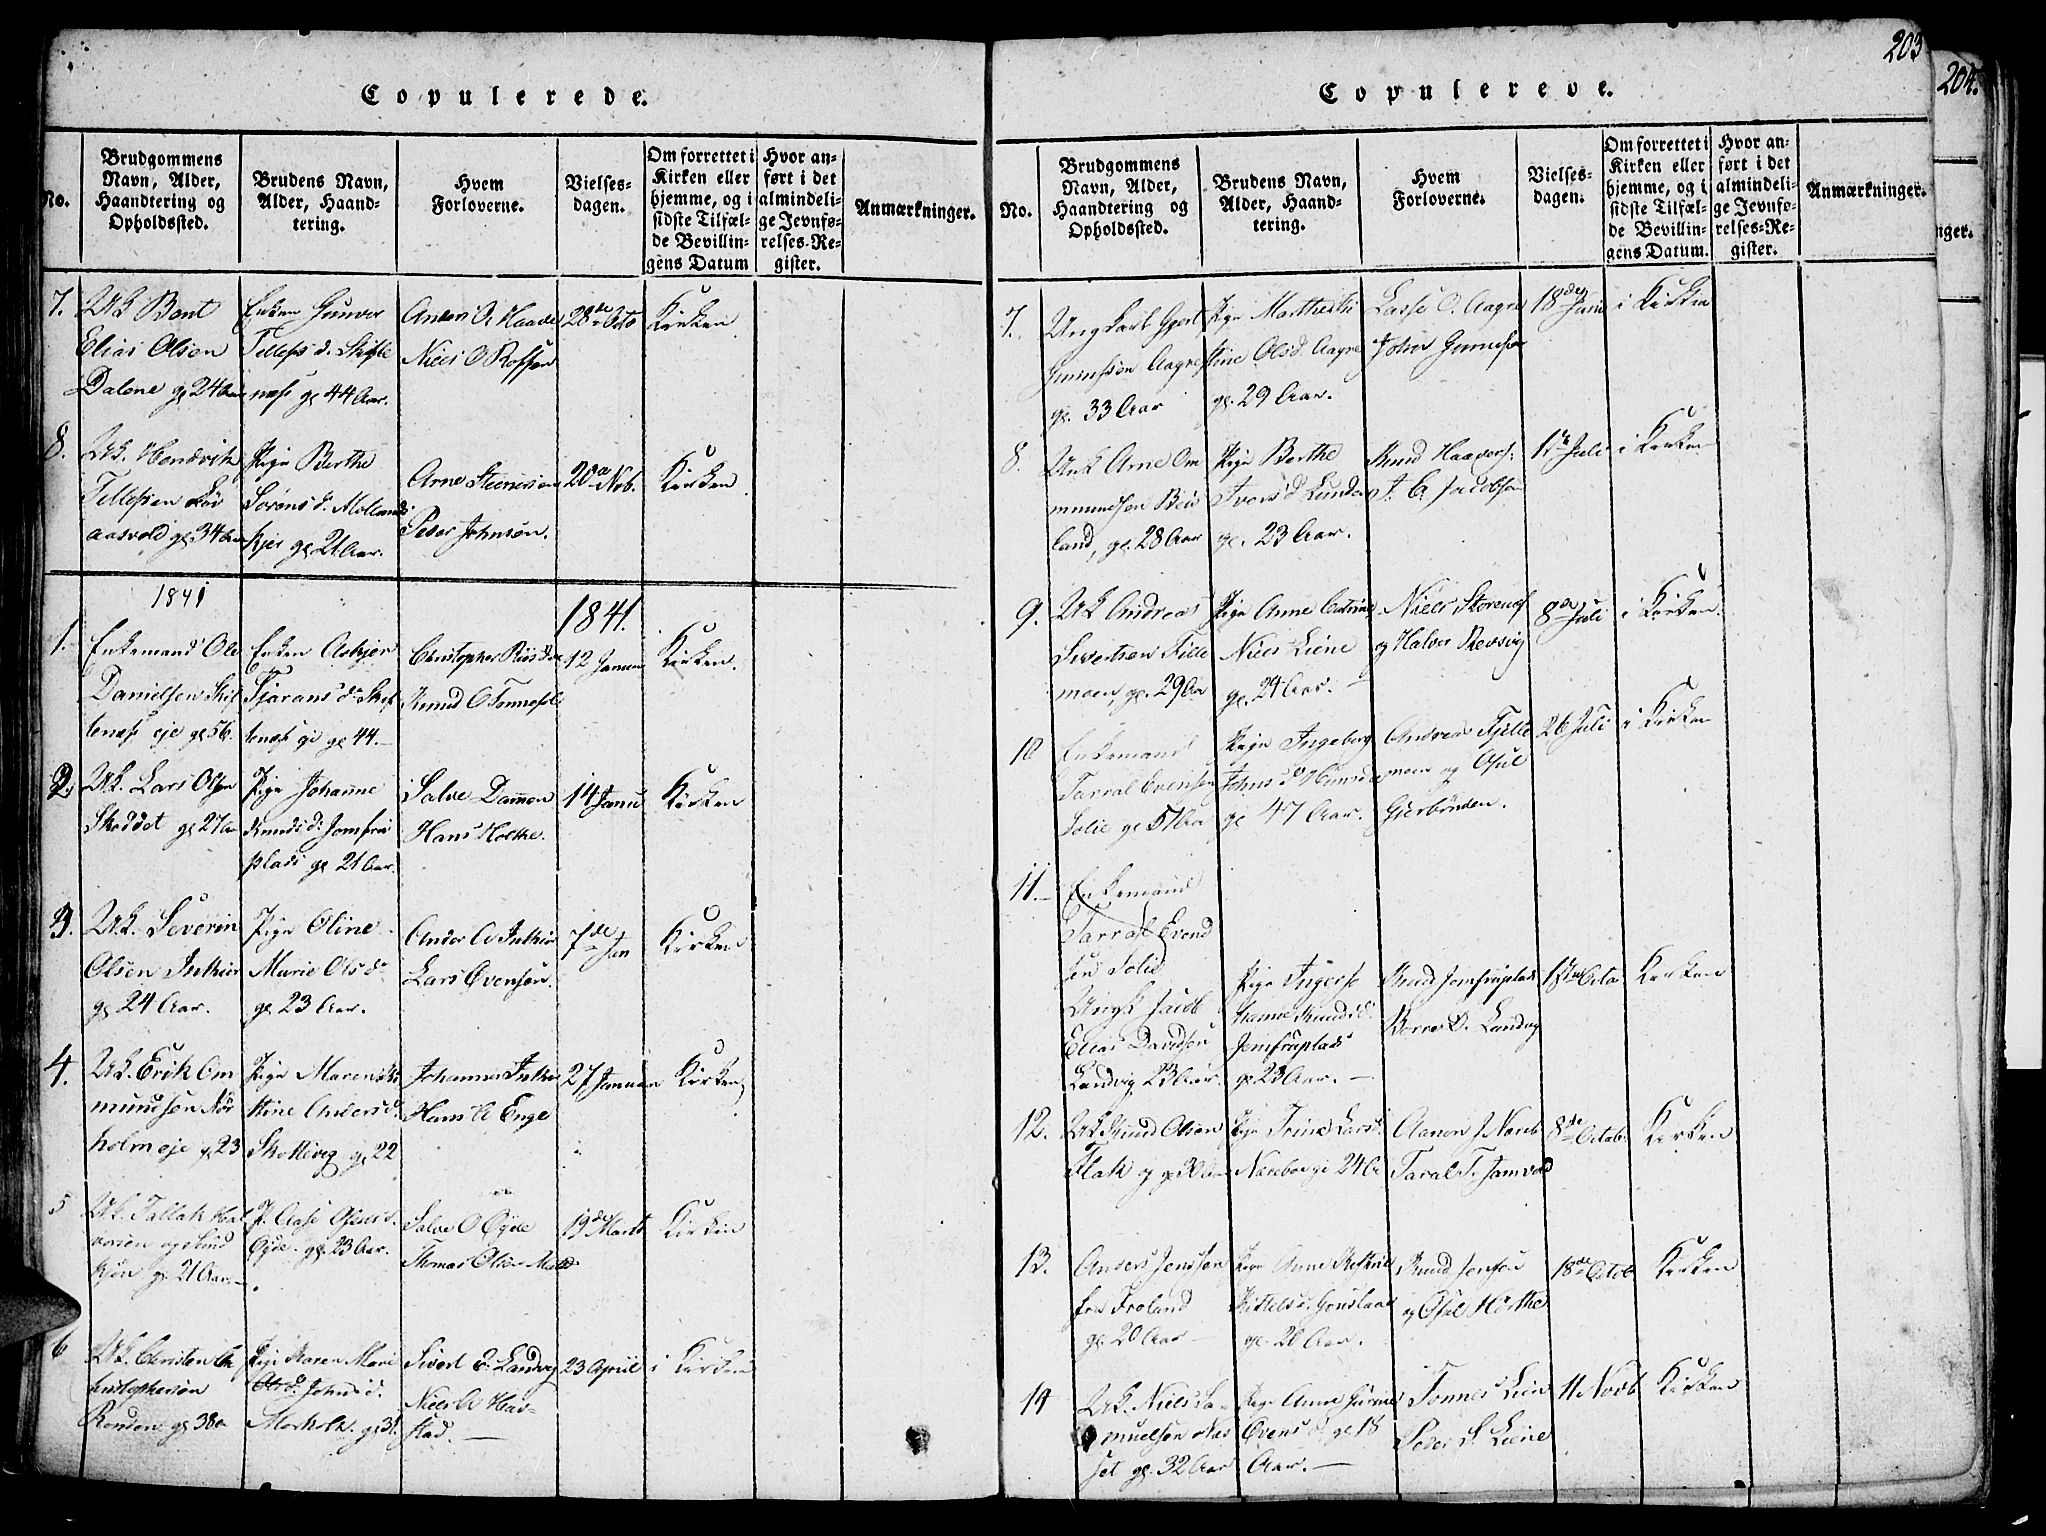 203
204.
Copulerede.
No.
Brudgommens
Navn, Alder,
Haandtering og
Opholdssted.
Brudens Navn,
Alder, Haand-
tering.
Hvem
Forloverne.
Vielses-
dagen.
Om forrettet i
Kirken eller
hjemme, og i
sidste Tilfæl-
de Bevillin-
gens Datum
Hvor an-
ført i det
almindeli-
ge Jevnfø-
relses-Re-
gister.
Anmærkninger.
7.
UK Bent
Elias Olsen
Dalene gl 24 Aar
Enken Gunvor
Tellefs d. Skifte
næss gl 44 Aar.
Anders O. Haave
Niels O
28de Octo
Kirken
8.
UK. Hendrik
Tellefsen
aasvold gl 34 Aar
Pige Berthe
Sørens d. Molland
kjer gl 21 Aar.
Arne Steenersen
Peder Johnsøn.
20de Nob.
Kirken
1841
1841.
1.
Enkemand Ole
Danielsen Skif
tenæss eje gl 56.
Enken Askjer
Tjørans d. Skif
tenæss gl 44.
Christopher Riisdal
Knud O
12 Januar
Kirken.
2.
UK. Lars Olsen
Skoddet gl 27 Aar
Pige Johanne
Knuds d. Jomfru
plads gl 21 Aar.
Salve Dammen
Hans Holthe.
14 Janu
Kirken
3.
UK. Severin
Olsen Inkier
gl 24 Aar.
Pige Oline
Marie Ols d.
gl 23 Aar.
Anders O Inkier
Lars Evensøn.
7de Jan
Kirken
4.
UK. Erik Om
mundsen Nør
holm eje gl 23
Pige Maren
stine Anders d.
Skottevig gl 22
Johannes Inkier
Hans A Enge
27 Januar
Kirken
5
UK. Tallak Hal
vorsen
gl 21 Aar.
P. Aase Osuls d.
Øyde. gl 23 Aar.
Salve O Øyde
Thomas Olsen
19de Marts
Kirken
6
UK. Christen Ch
ristophersøn
Ronden gl 38
Pige Karen Marie
Johns d.
Morholt. gl 31.
Sivert E. Landvig
Niels O Hav-
stad.
23 April
i Kirken
Copulerede.
No.
Brudgommens
Navn, Alder,
Haandtering og
Opholdssted.
Brudens Navn,
Alder, Haand-
tering.
Hvem
Forloverne.
Vielses-
dagen.
Om forrettet i
Kirken eller
hjemme, og i
sidste Tilfæl-
de Bevillin-
gens Datum.
Hvor an-
ført i det
almindeli-
ge Jevnfø-
relses-Re-
gister.
Anmærkninger.
nger.
7.
Ungkarl Gjert
Gunnssøn Aagre
gl. 33 Aar
Pige Marthe
stine Olsd. Aagre
gl. 29 Aar.
Lasse O. Aagre
John Gunnssøn
18de Juni
i Kirken
8.
Unk Arne Om
mundsen Bie
land, gl. 28 Aar
Pige Berthe
Ivers d Lunden
gl. 23 Aar.
Knud Haavors:
J. C. Jacobsen
1ste Juli
i Kirken
9.
UK Andreas
Sivertsen Fille
moen, gl. 29 Aar
Pige Anne Catrine
Niels Liene
gl. 24 Aar.
Niels Storenes
og Halvor Revsvig
8de Juli
i Kirken.
10
Enkemand
Tarral Evensen
Solie gl 51 Aar
Pige Ingeborg
Johns d
gl 47 Aar.
Andreas Fjille
moen og Osul
Gjerbonden.
26 Juli
i Kirken
11.
Enkemand
Tarral Evend
sen Solie
Ungk Jacob
Elias Davidsen
Landvig 23 Aar
Pige Ingerse
Hanne Knuds d.
Jomfruplads
gl 23 Aar.
Knud Jomfruplads
Børre O. Landvig
1ste Octo
Kirken
12.
UK Knud Olsen
Flak eje gl 30 Aar
Pige Trine Lars d.
Nærebø eje 24 A
Aanon J Næreb
Taral T. Jamvold
8de Octob:
Kirken
13.
Anders Jenssen
fra Froland
gl. 20 Aar
Pige Anne
Kittels d.
gl. 20 Aar.
Knud Jensen
og Osul Holthe
18de Octob
Kirken
14
UK. Niels Sa-
muelsen Næs
set gl. 32 Aar
Pige Anne Gurine
Evens d. gl 18
Aar.
Tønnes Lien
Peder S. Liene
11 Novb
Kirken